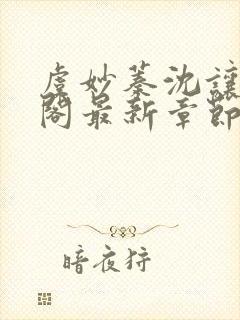 虞妙蓁沈讓
閣最新章節
暗夜狩